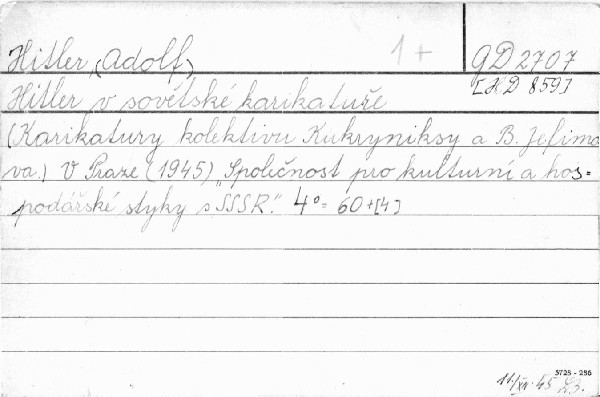 Hitler, (Adolf) 1+ GD 2707
Hitler v sovětské karikatuře [HD 859]
(Karikatury kolektivu Kukryniksy a B. Jefimo
va.) V Praze (1945) „Společnost pro kulturní a hos=
podářské styky s SSSR." 4°= 60+[4]
5728 - 286
11/XII. 45